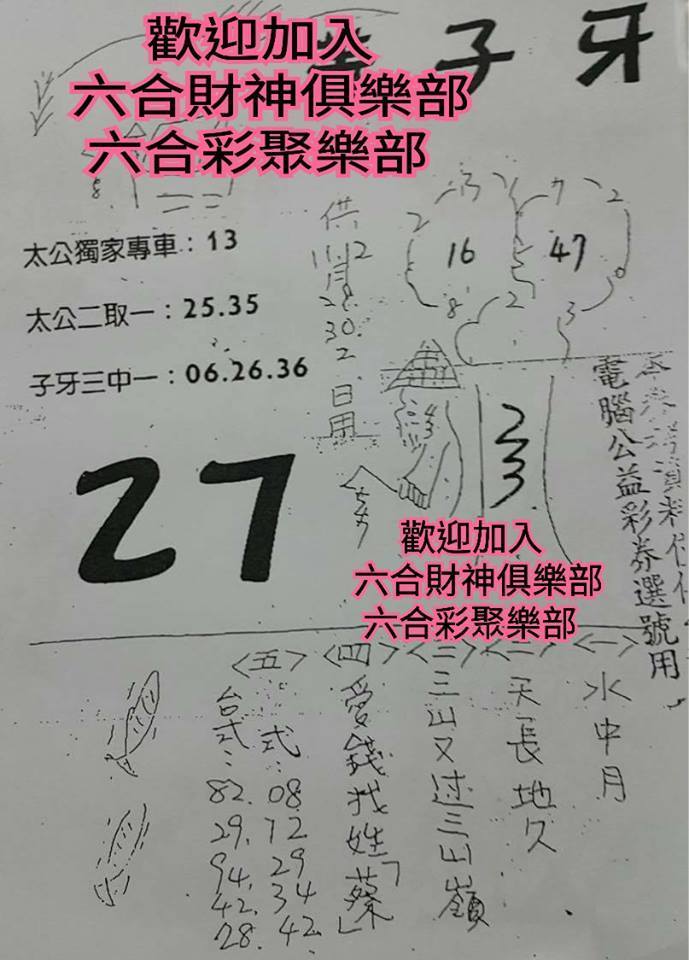 歡迎加入
六合財神俱樂部
六合彩聚樂部
子牙
8
太公獨家專車：13
太公二取一：25.35
子牙三中一：06.26.36
供
11.12
月
28
30
2
日用
2
3
16
8
7
2
47
0
2
3
27
電腦公益彩券選號用
歡迎加入
六合財神俱樂部
六合彩聚樂部
<一>
水中月
<二>
天長地久
<三>
三山又过三山嶺
<四>
愛錢找姓「蔡」
<五>
式：
08
12
29
34
42
台式：
82.
29.
94.
42.
28.